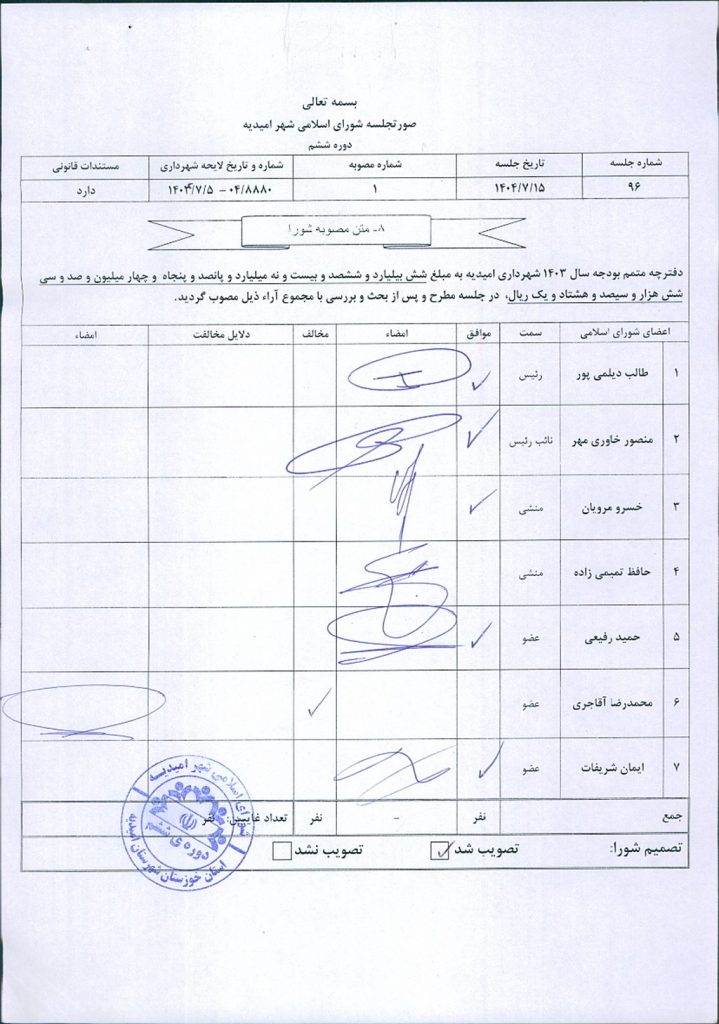 بسمه تعالی
صورتجلسه شورای اسلامی شهر امیدیه
دوره ششم
شماره جلسه تاریخ جلسه شماره مصوبه شماره و تاریخ لایحه شهرداری مستندات قانونی
۹۶ ۱۴۰۴/۷/۱۵ ۱ ۰۴/۸۸۸۰ – ۱۴۰۳/۷/۵ دارد
۸- متن مصوبه شورا
دفترچه متمم بودجه سال ۱۴۰۳ شهرداری امیدیه به مبلغ شش بیلیارد و ششصد و بیست و نه میلیارد و پانصد و پنجاه و چهار میلیون و صد و سی
شش هزار و سیصد و هشتاد و یک ریال، در جلسه مطرح و پس از بحث و بررسی با مجموع آراء ذیل مصوب گردید.
اعضای شورای اسلامی سمت موافق امضاء مخالف دلایل مخالفت امضاء
۱ طالب دیلمی پور رئیس
۲ منصور خاوری مهر نائب رئیس
۳ خسرو مرویان منشی
۴ حافظ تمیمی زاده منشی
۵ حمید رفیعی عضو
۶ محمدرضا آقاجری عضو
۷ ایمان شریفات عضو
جمع نفر – نفر تعداد غایبین: نفر
تصمیم شورا: تصویب شد تصویب نشد
شورای اسلامی شهر امیدیه
دوره ی ششم
استان خوزستان شهرستان امیدیه